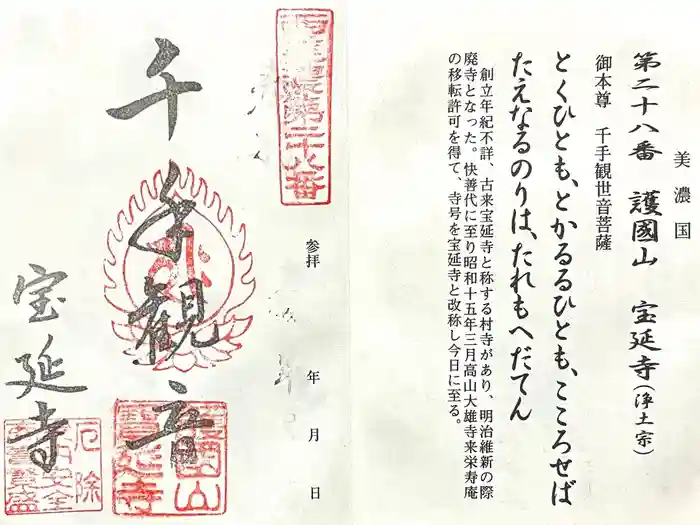 美濃国
第二十八番 護國山 宝延寺(浄土宗)
御本尊 千手観世音菩薩
とくひとも、とかるるひとも、こころせば
たえなるのりは、たれもへだてん
創立年紀不詳、古来宝延寺と称する村寺があり、明治維新の際
廃寺となった。快善代に至り昭和十五年三月高山大雄寺来栄寿庵
の移転許可を得て、寺号を宝延寺と改称し今日に至る。
参拝 年 月 日
第二十八番
千手観音
宝延寺
護國山
寶延寺
厄除